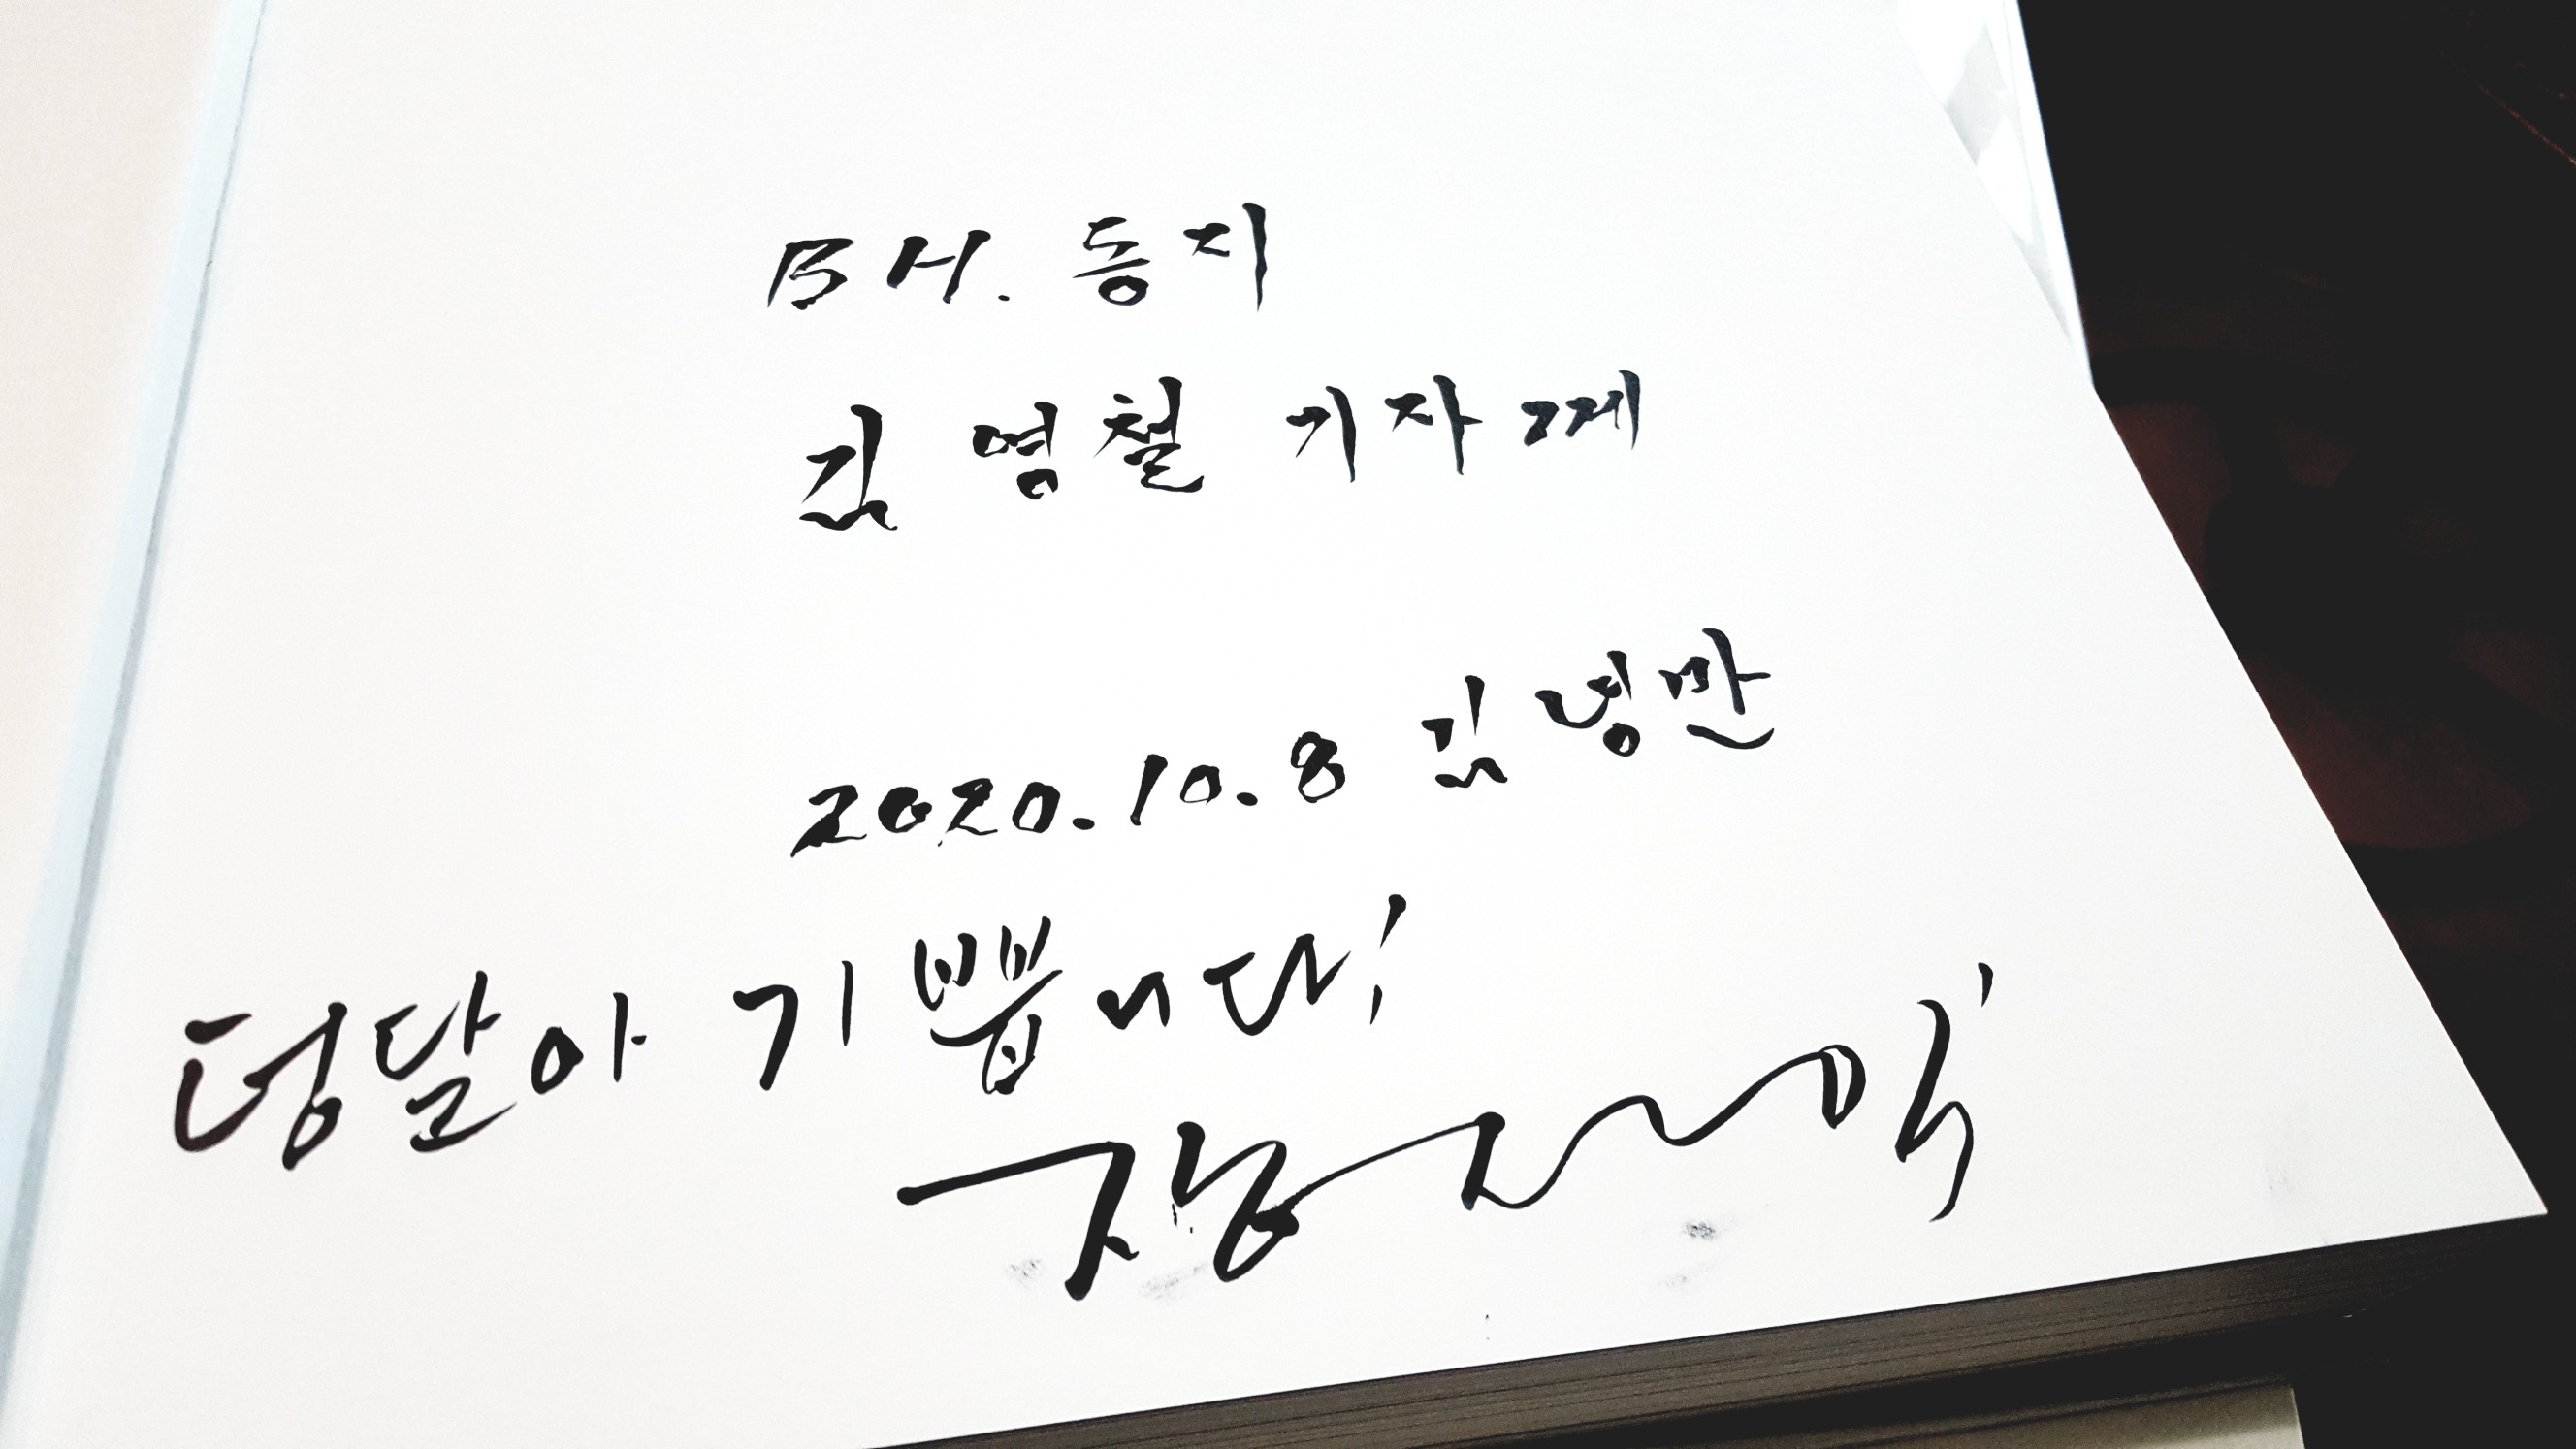 BH. 동지
김영철 기자께
2020.10.8 김녕만
덩달아 기쁩니다!